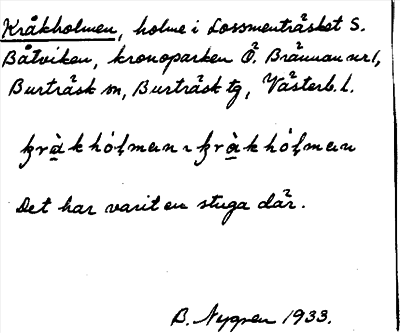 Kråkholmen, holme i Lossmenträsket S.
Båtviken, kronoparken Ö. Brännan nr 1,
Burträsk sn, Burträsk tg, Västerb. l.
kràkhólman ı kràkhólman
Det har varit en stuga där.
B. Nygren 1933.